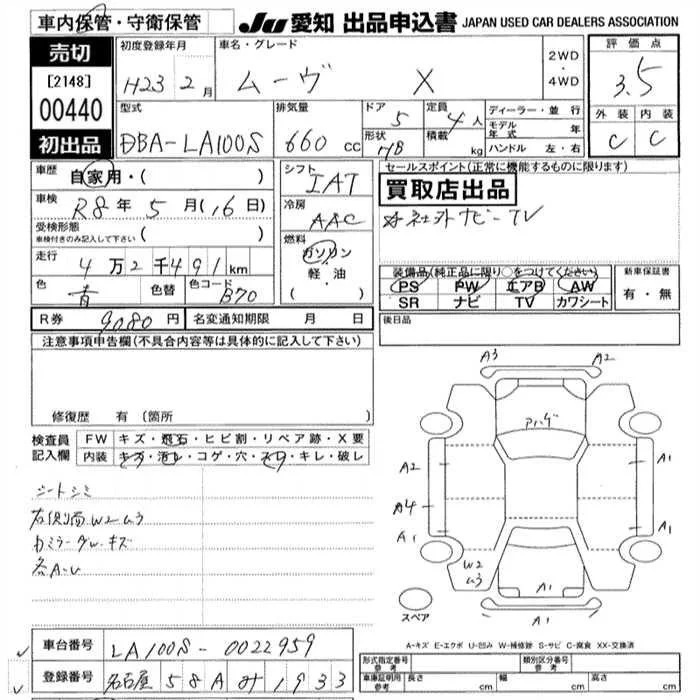 車内保管・守衛保管
JU 愛知 出品申込書 JAPAN USED CAR DEALERS ASSOCIATION
売切
[2148]
00440
初出品
初度登録年月
H23 2月
車名・グレード
ムーヴ X
2WD
・
4WD
評価点
3.5
外装 内装
C C
型式
DBA-LA100S
排気量
660 cc
ドア 5
形状 HB
定員 4人
積載 kg
ディーラー・並行
モデル年式 年
ハンドル 左・右
車歴 自家用・( )
車検 R8年 5月(16日)
受検形態 ( )
車検付きのみ記入して下さい
走行 4万2千491km
色 青 色替 色コード B70
シフト
IAT
冷房
AAC
燃料
ガソリン
軽・油
( ・ )
セールスポイント(正常に機能するものに限ります)
買取店出品
社外ナビ-TV
装備品(純正品に限り○をつけてください)
PS PW エアB AW
SR ナビ TV カワシート
新車保証書
有・無
R券 9080円 名変通知期限 月 日
後日品
注意事項申告欄(不具合内容等は具体的に記入して下さい)
修復歴 有(箇所
検査員記入欄
FW キズ・飛石・ヒビ割・リペア跡・X要
内装 キズ・汚レ・コゲ・穴・スレ・キレ・破レ
シートシミ
右側面W2ムラ
カミラーダw.キズ
各A・U
A3 A2
アハゲ
A2 A1
A4
A1 A1
W2
ムラ
A1
A1
スペア
A-キズ E-エクボ U-凹み W-補修跡 S-サビ C-腐食 XX-交換済
車台番号 LA100S-0022959
登録番号 名古屋 58A 1933
形式指定番号 参考
類別区分番号 参考
車庫証明用 参考 長さ cm 幅 cm 高さ cm